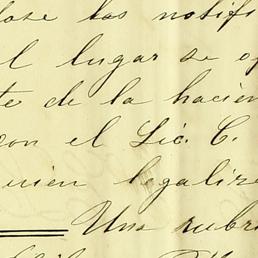 dose los notifi
l lugar se o
te de la hacien
con el Lic. C.
uien legaliz
Una rubri